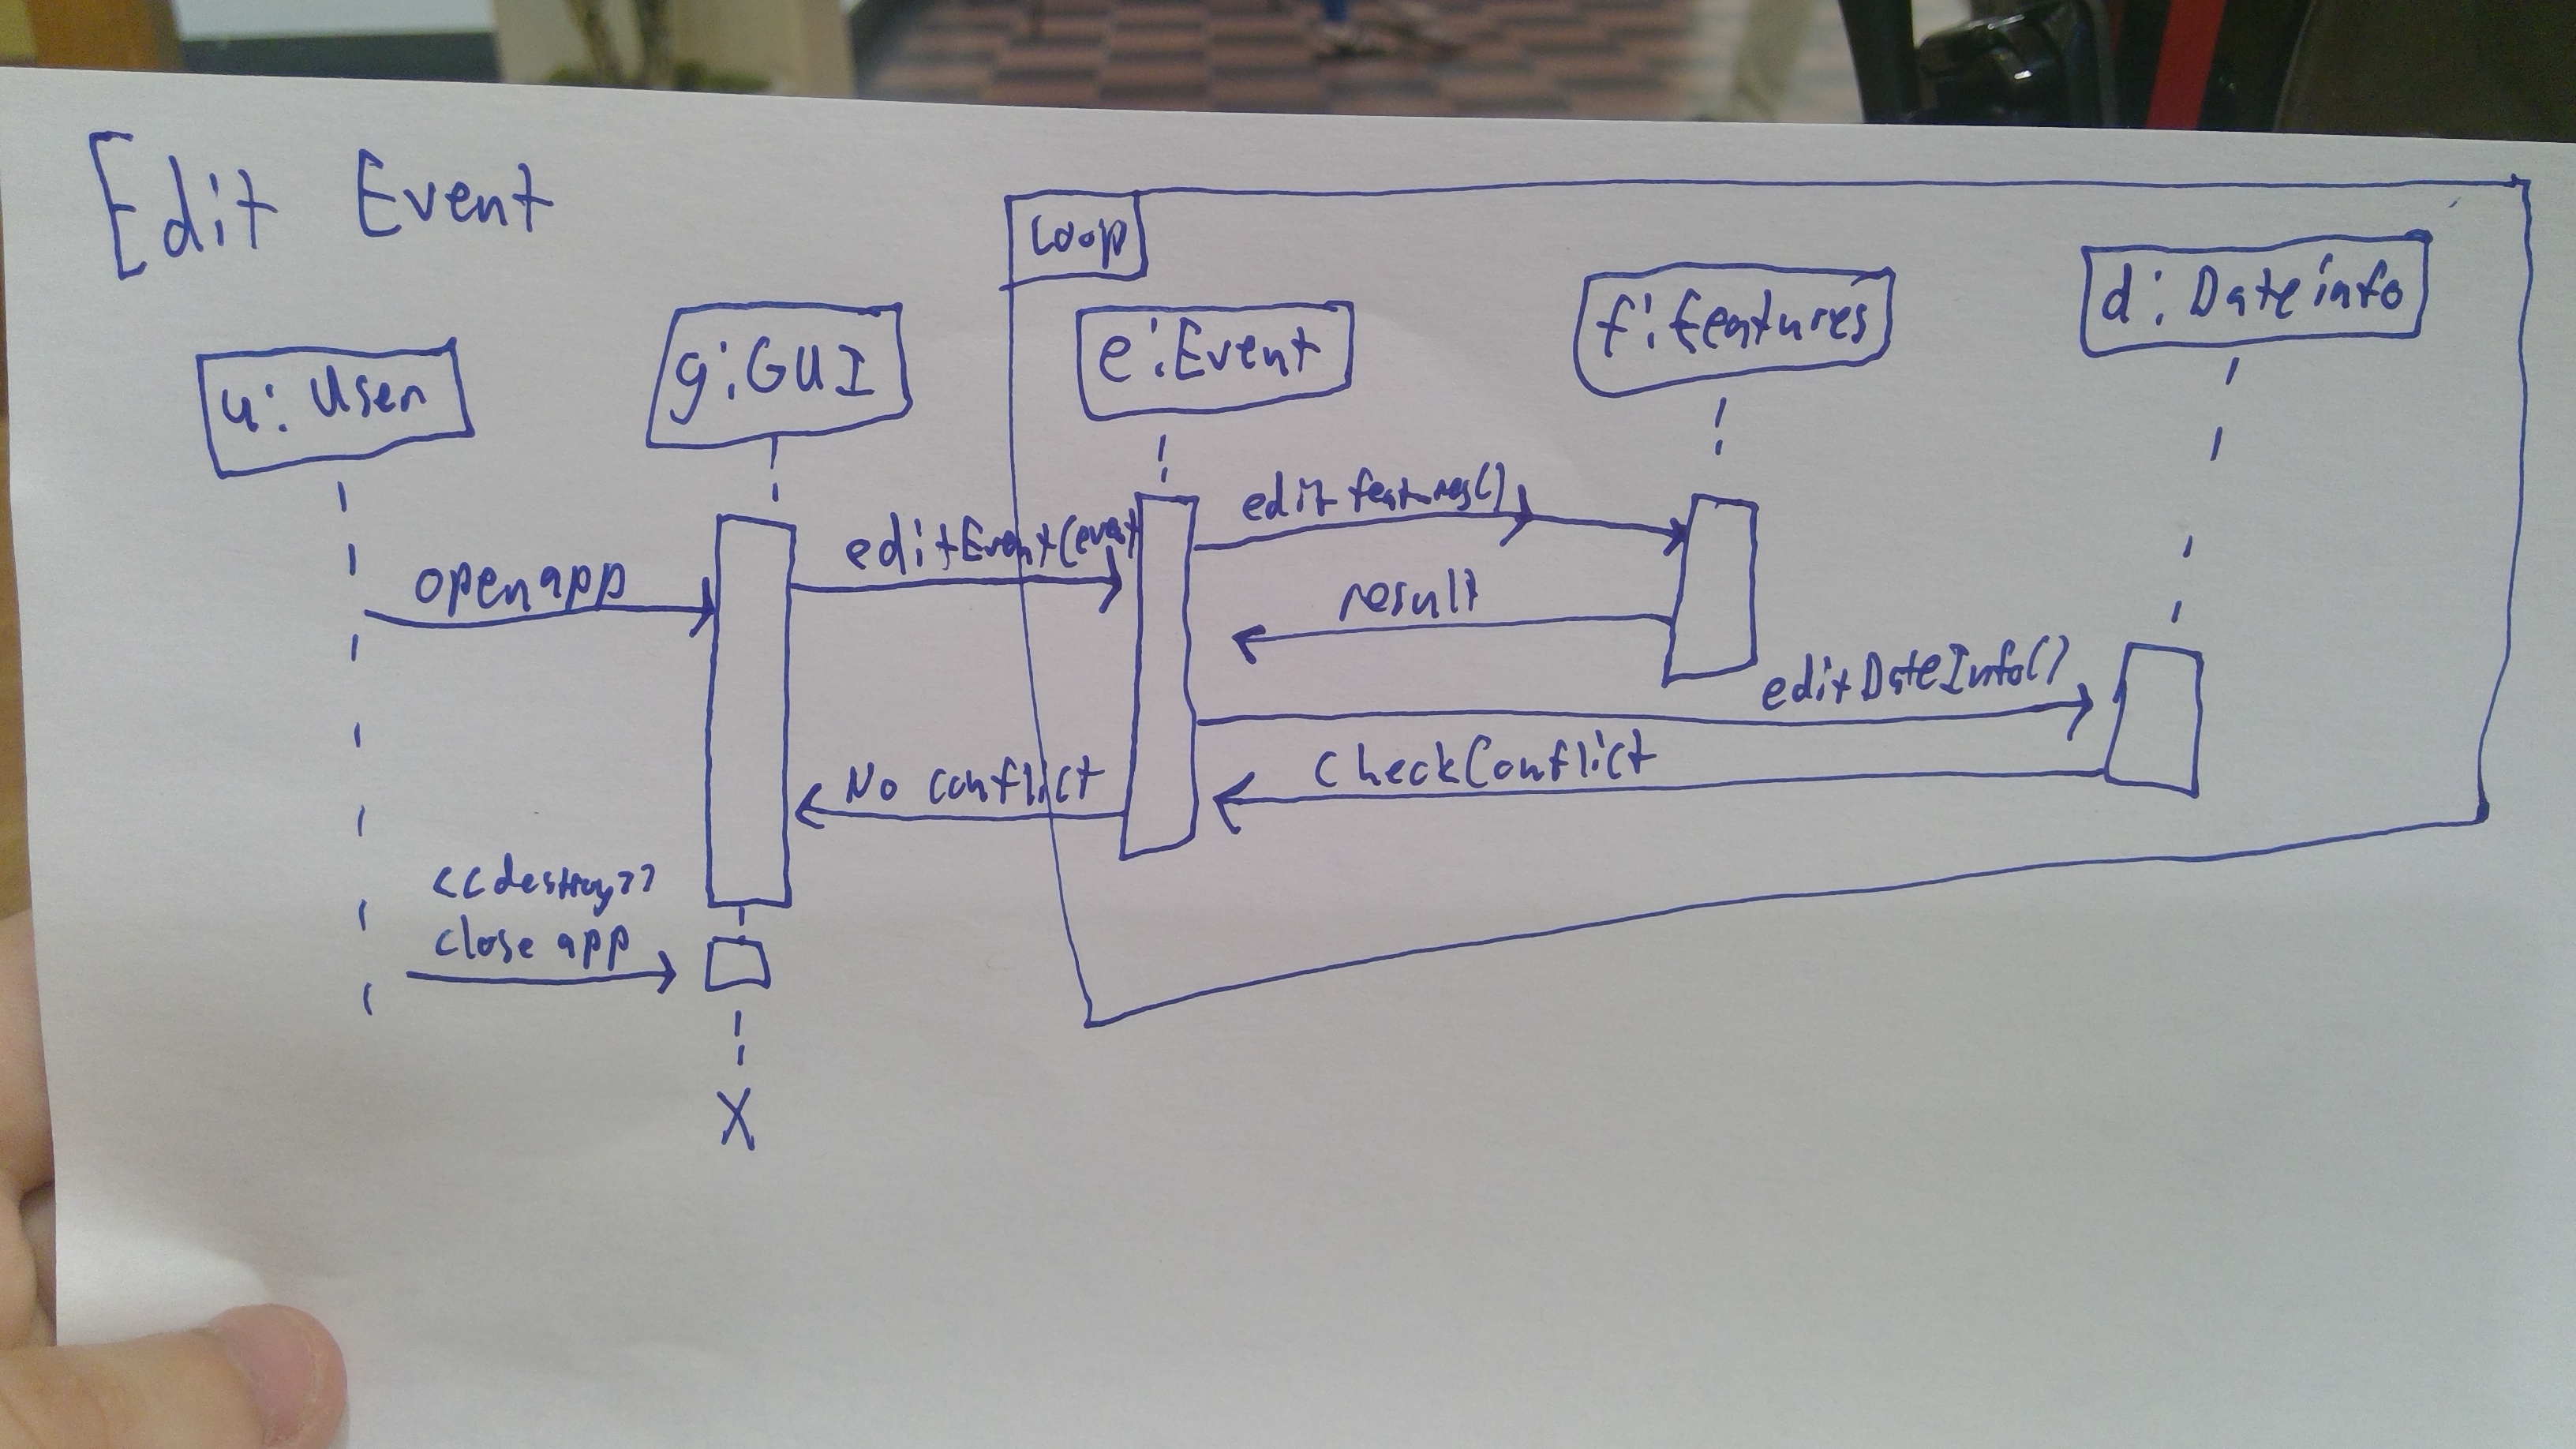 Edit Event
loop
u: User
g:GUI
e:Event
f:features
d:Dateinfo
open app
editEvent(event
edit features()
result
editDateInfo()
checkConflict
No conflict
<<destroy>>
close app
X